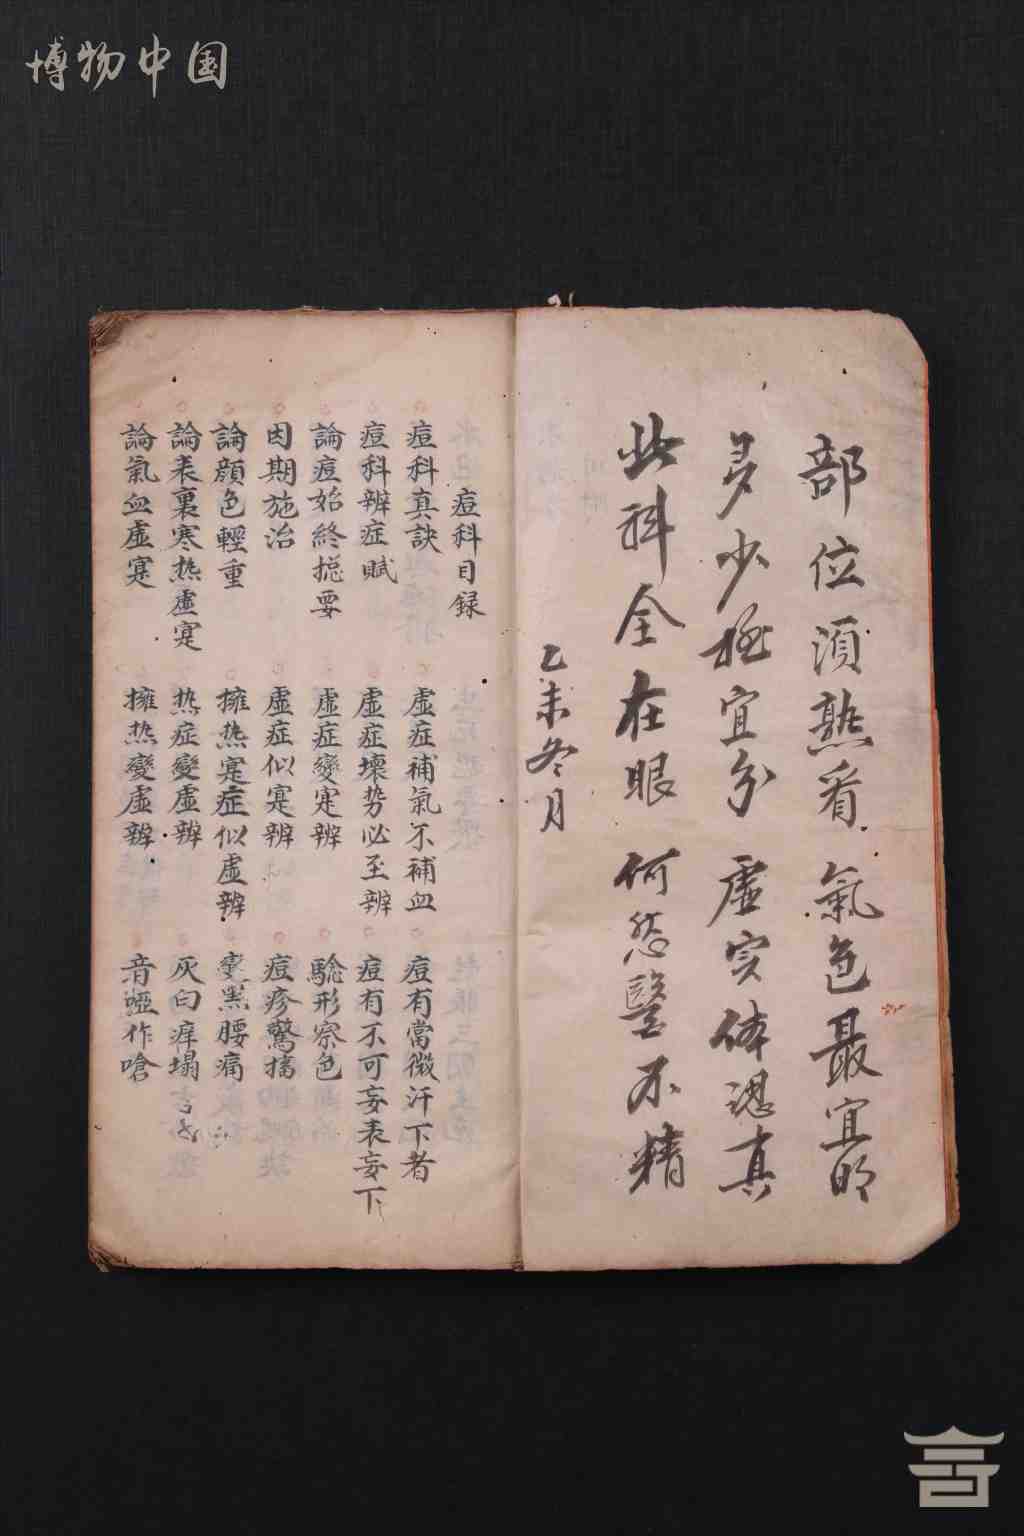 博物中国
部位須熟看氣色最宜明
多少極宜分虛实体認真
此科全在眼何愁醫不精
乙未冬月
痘科目録
痘科真訣
虛症補氣不補血
痘有當微汗下者
痘科辨症賦
虛症壞势必至辨
痘有不可妄表妄下
論痘始終揔要
虛症變寔辨
驗形察色
因期施治
虛症似寔辨
痘疹驚搐
論顔色輕重
擁热寔症似虛辨
變黑腰痛
論表裏寒热虛寔
热症變虛辨
灰白痒塌
論氣血虛寔
擁热變虛辨
音啞作嗆